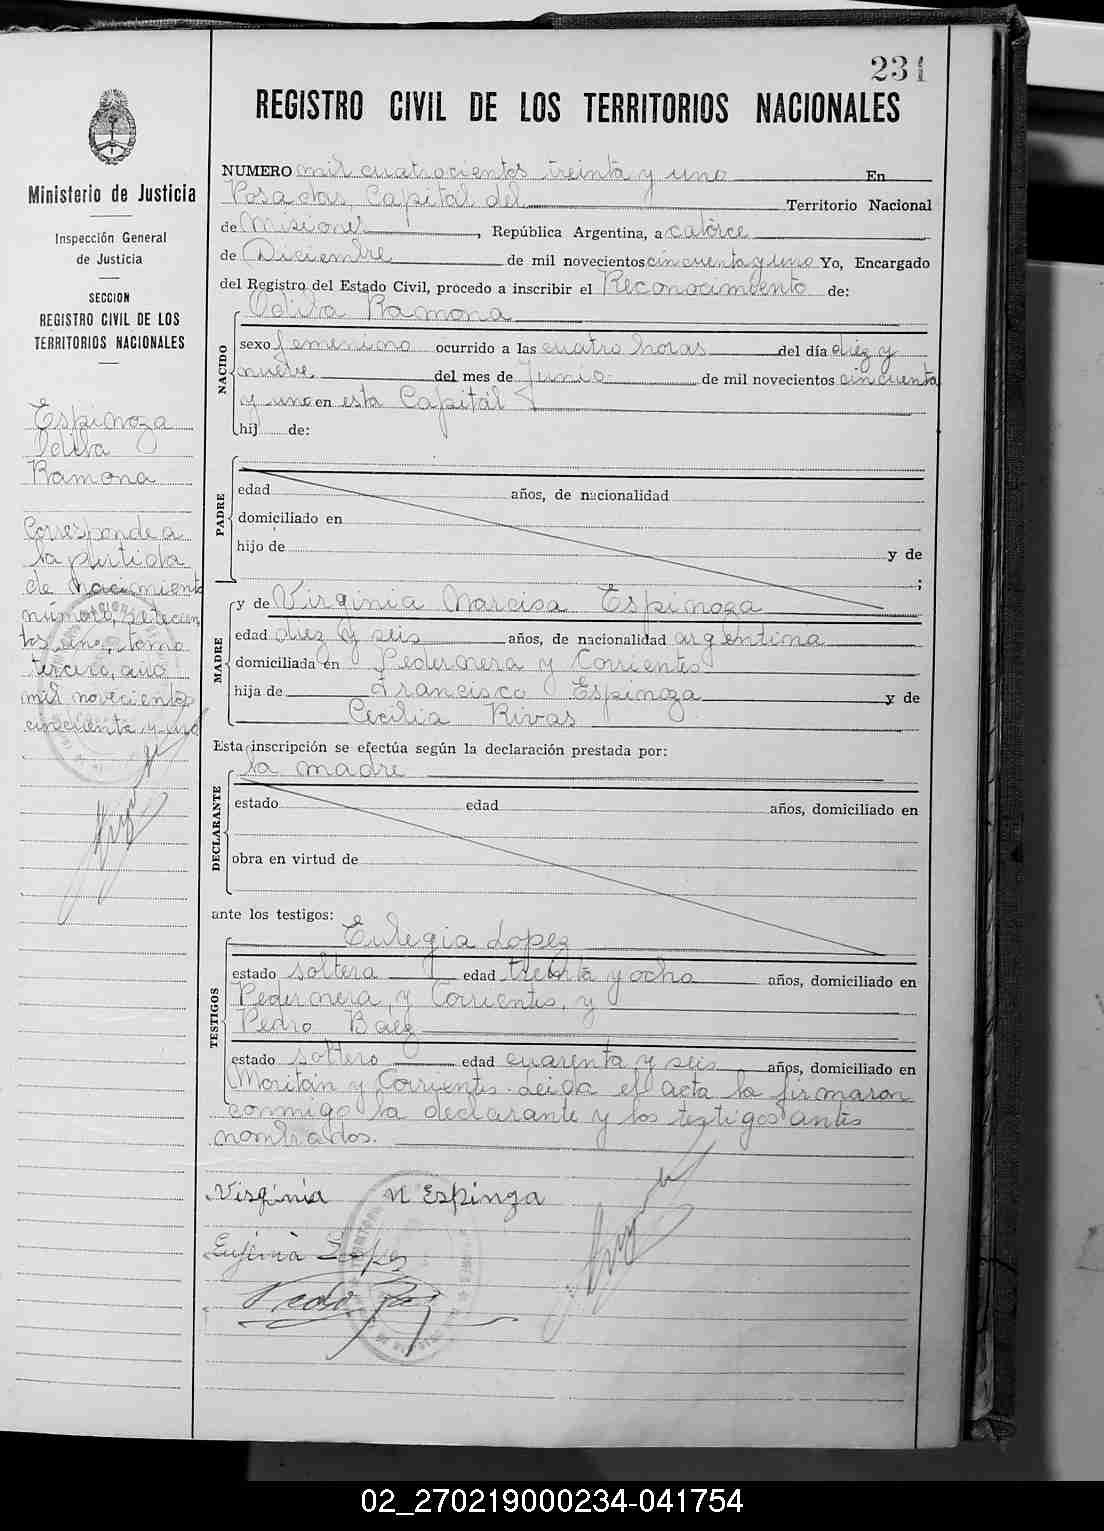 231
REGISTRO CIVIL DE LOS TERRITORIOS NACIONALES
Ministerio de Justicia
Inspección General
de Justicia
SECCION
REGISTRO CIVIL DE LOS
TERRITORIOS NACIONALES
Espinoza
Odilia
Ramona
Corresponde a
la partida
de nacimiento
número, setecien
tos once, tomo
tercero, año
mil novecientos
cincuenta y uno
NUMERO mil cuatrocientos treinta y uno En
Posadas, Capital del Territorio Nacional
de Misiones, República Argentina, a catorce
de Diciembre de mil novecientos cincuenta y uno Yo, Encargado
del Registro del Estado Civil, procedo a inscribir el Reconocimiento de:
NACIDO
Odilia Ramona
sexo femenino ocurrido a las cuatro horas del día diez y
nueve del mes de Junio de mil novecientos cincuenta
y uno en esta Capital
hij de:
PADRE
edad años, de nacionalidad
domiciliado en
hijo de y de
;
MADRE
y de Virginia Narcisa Espinoza
edad diez y seis años, de nacionalidad argentina
domiciliada en Pedernera y Corrientes
hija de Francisco Espinoza y de
Cecilia Rivas
Esta inscripción se efectúa según la declaración prestada por:
DECLARANTE
la madre
estado edad años, domiciliado en
obra en virtud de
ante los testigos:
TESTIGOS
Eulegia Lopez
estado soltera edad treinta y ocho años, domiciliado en
Pedernera y Corrientes, y
Pedro Báez
estado soltero edad cuarenta y seis años, domiciliado en
Moritán y Corrientes. Leida el acta la firmaron
conmigo la declarante y los testigos antes
nombrados.
Virginia N Espinoza
Eugenia Lopez
Pedro Baez
02_270219000234-041754